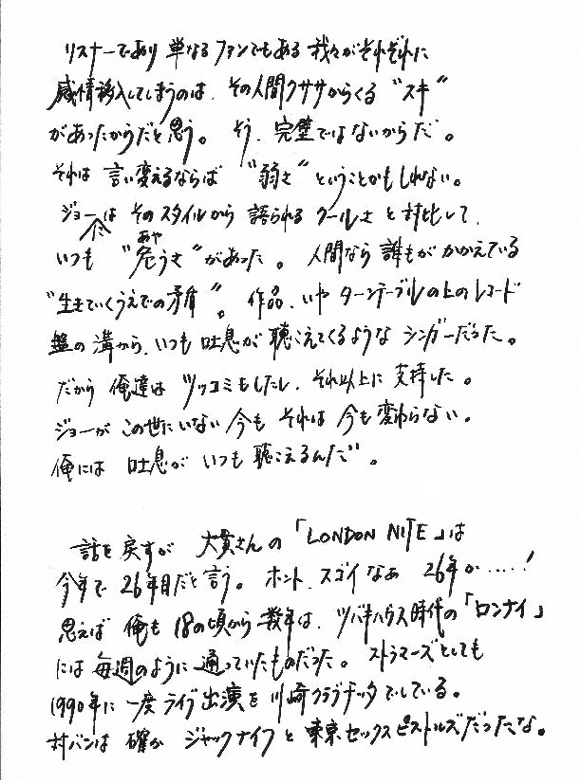 リスナーであり 単なるファンでもある 我々がそれぞれに
感情移入してしまうのは、その人間クササからくる “スキ”
があったからだと思う。そう、完璧ではないからだ。
それは 言い変えるならば “弱さ” ということかもしれない。
ジョーには そのスタイルから 語られる クールさ と対比して、
いつも “危うさ(あや)” があった。人間なら 誰もが かかえている
“生きていくうえでの矛盾”。作品、いや ターンテーブルの上のレコード
盤の溝から、いつも 吐息が 聴こえてくるような シンガーだった。
だから 俺達は ツッコミもしたし、それ以上に 支持した。
ジョーが この世にいない 今も それは 今も 変わらない。
俺には 吐息が いつも 聴こえるんだ。
話を 戻すが 大貫さんの 「LONDON NITE」は
今年で 26年目だと言う。ホント、スゴイなぁ 26年か……!
思えば 俺も 18の頃から 数年は、ツバキハウス時代の「ロンナイ」
には 毎週のように 通っていたものだった。ストラマーズとしても
1990年に 一度 ライブ出演を 川崎クラブチッタでしている。
対バンは 確か ジャックナイフ と 東京セックスピストルズだったな。